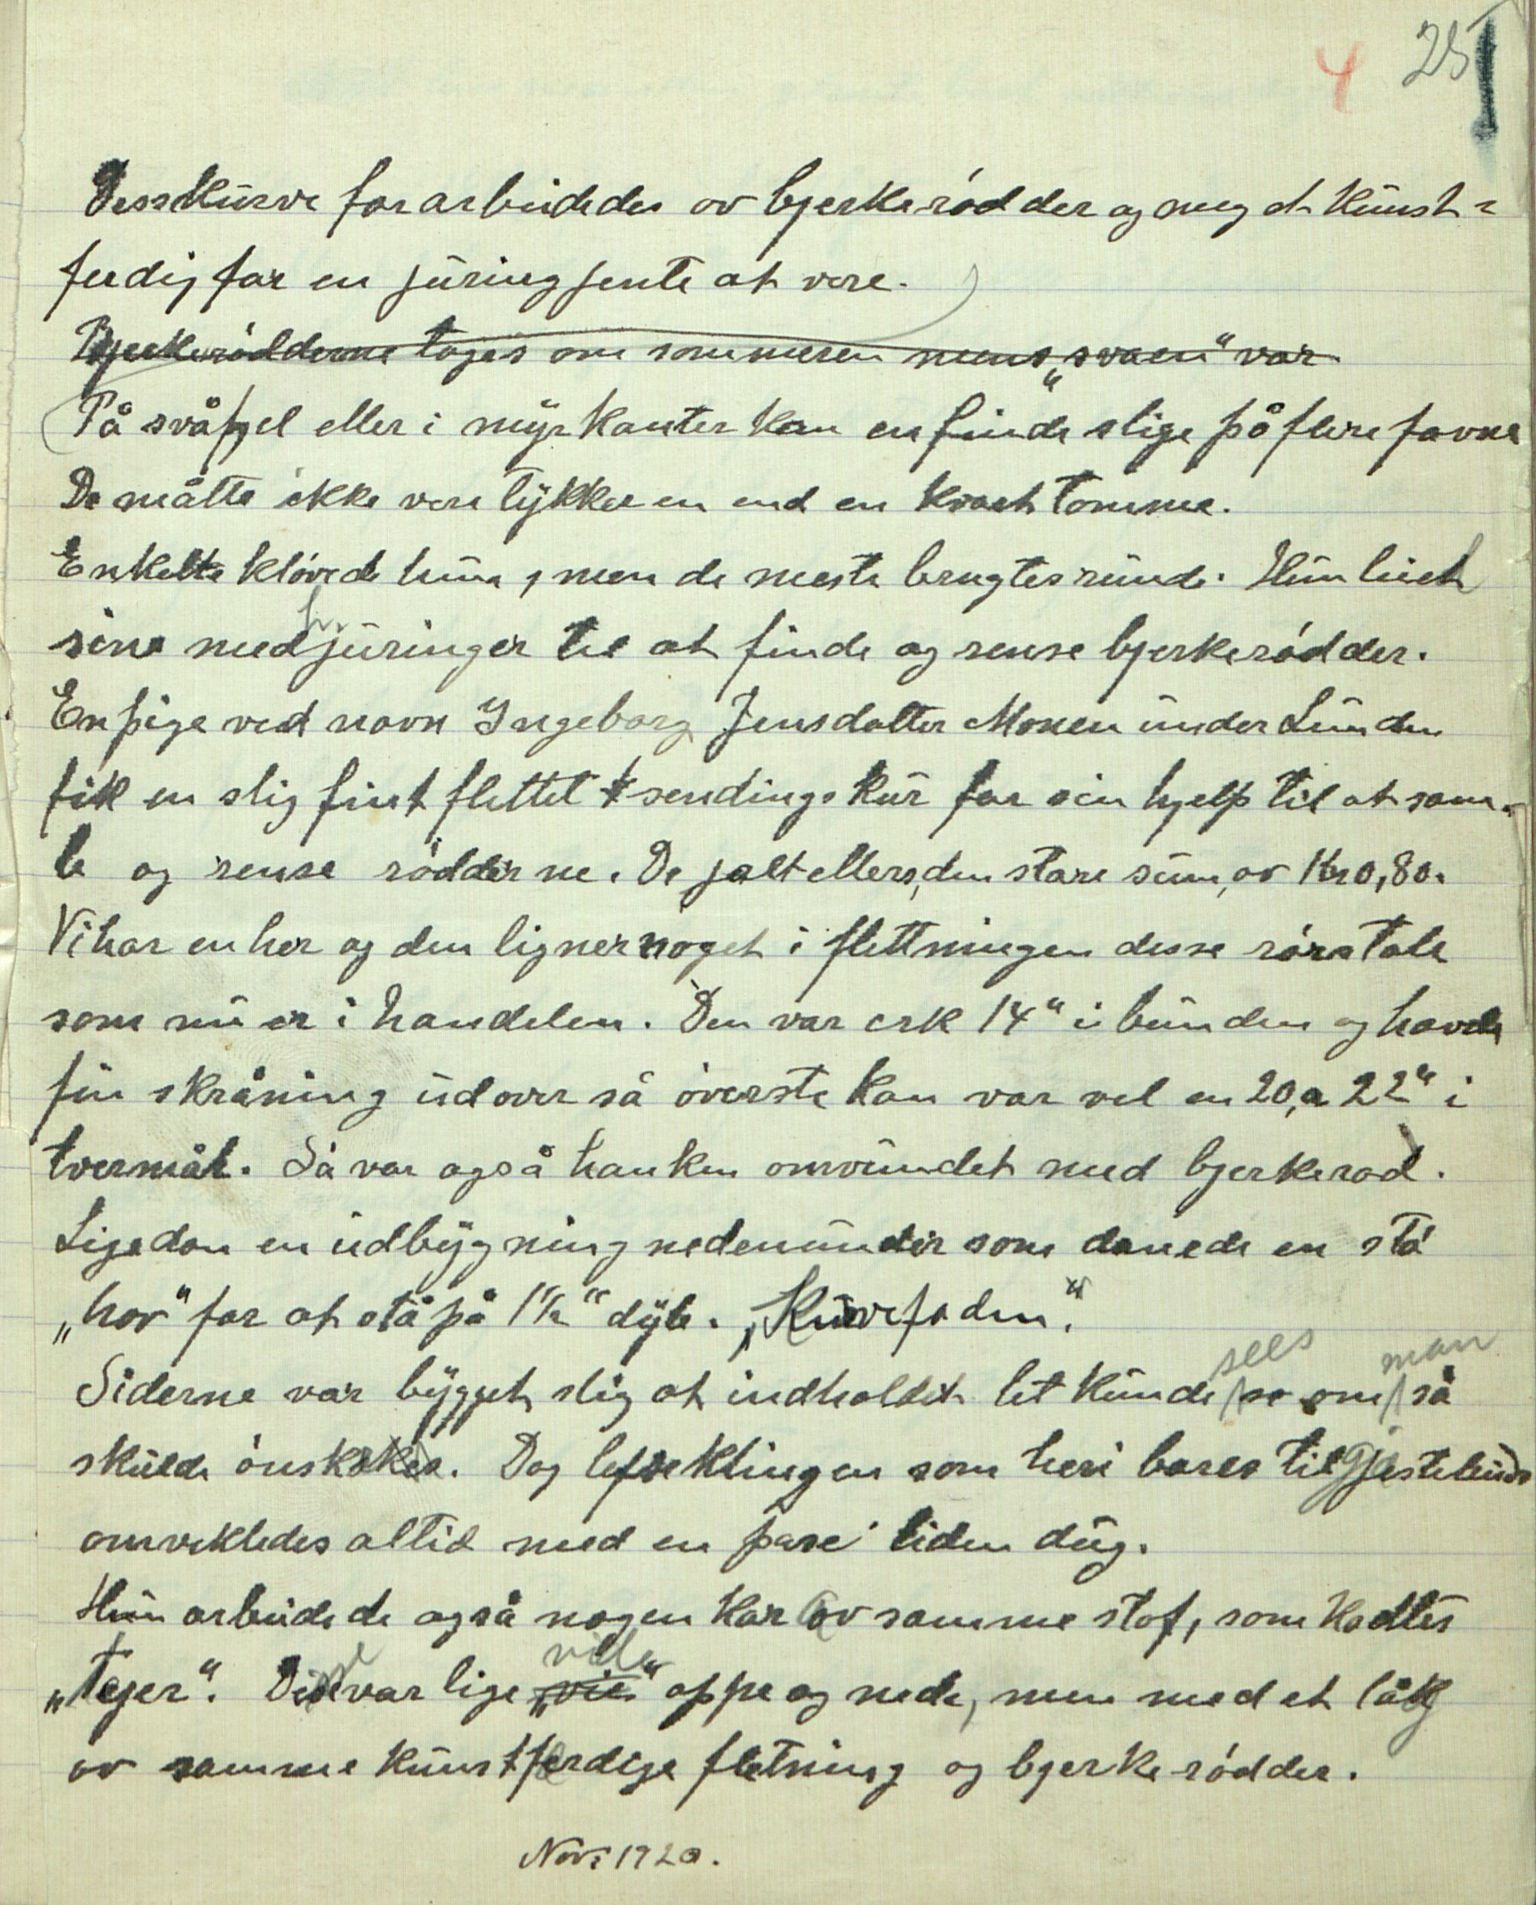 4 25
Desse kurve forarbeidedes av bjerkerødder og meget kunst-
ferdig for en juringjente at vere.
Bjerkerødderne toges om sommeren mens „svaen" var
På svåberg eller i myrkanter kan en finde slige på flere favne
De måtte ikke vere tykkere en end en kvart tomme.
Enkelte kløvede hun, men de meste brugtes runde. Hun leiet
sine medhjuringer til at finde og rense bjerkerødder.
En pige ved navn Ingeborg Jensdatter Monen under Lunden
fik en slig fint flettet sendingskur for sin hjelp til at sam-
le og rense rødderne. De gjalt ellers „den store sum" av Kr 0,80.
Vi har en her og den ligner noget i flettningen desse rørstole
som nu er i handelen. Den var crk 14" i bunden og havde
fin skråning udover så øverste kan var vel en 20 a 22" i
tvermål. Så var også hanken omvundet med bjerkerod.
Ligedan en udbygning nedenunder som danede en stå
„hov" for at stå på 1½" dyb. „Kurvefoden".
Siderne var bygget slig at indholdet let kunde sees om man så
skulde ønske. Dog lefseklingen som heri bares til gjestebuds
omvekledes altid med en pare liden dug.
Hun arbeidede også nogen kar av samme stof, som kadtes
„tejer". Disse var lige „vide" oppe og nede, men med et låg
av samme kunstferdige fletning og bjerkerødder.
Nov. 1920.